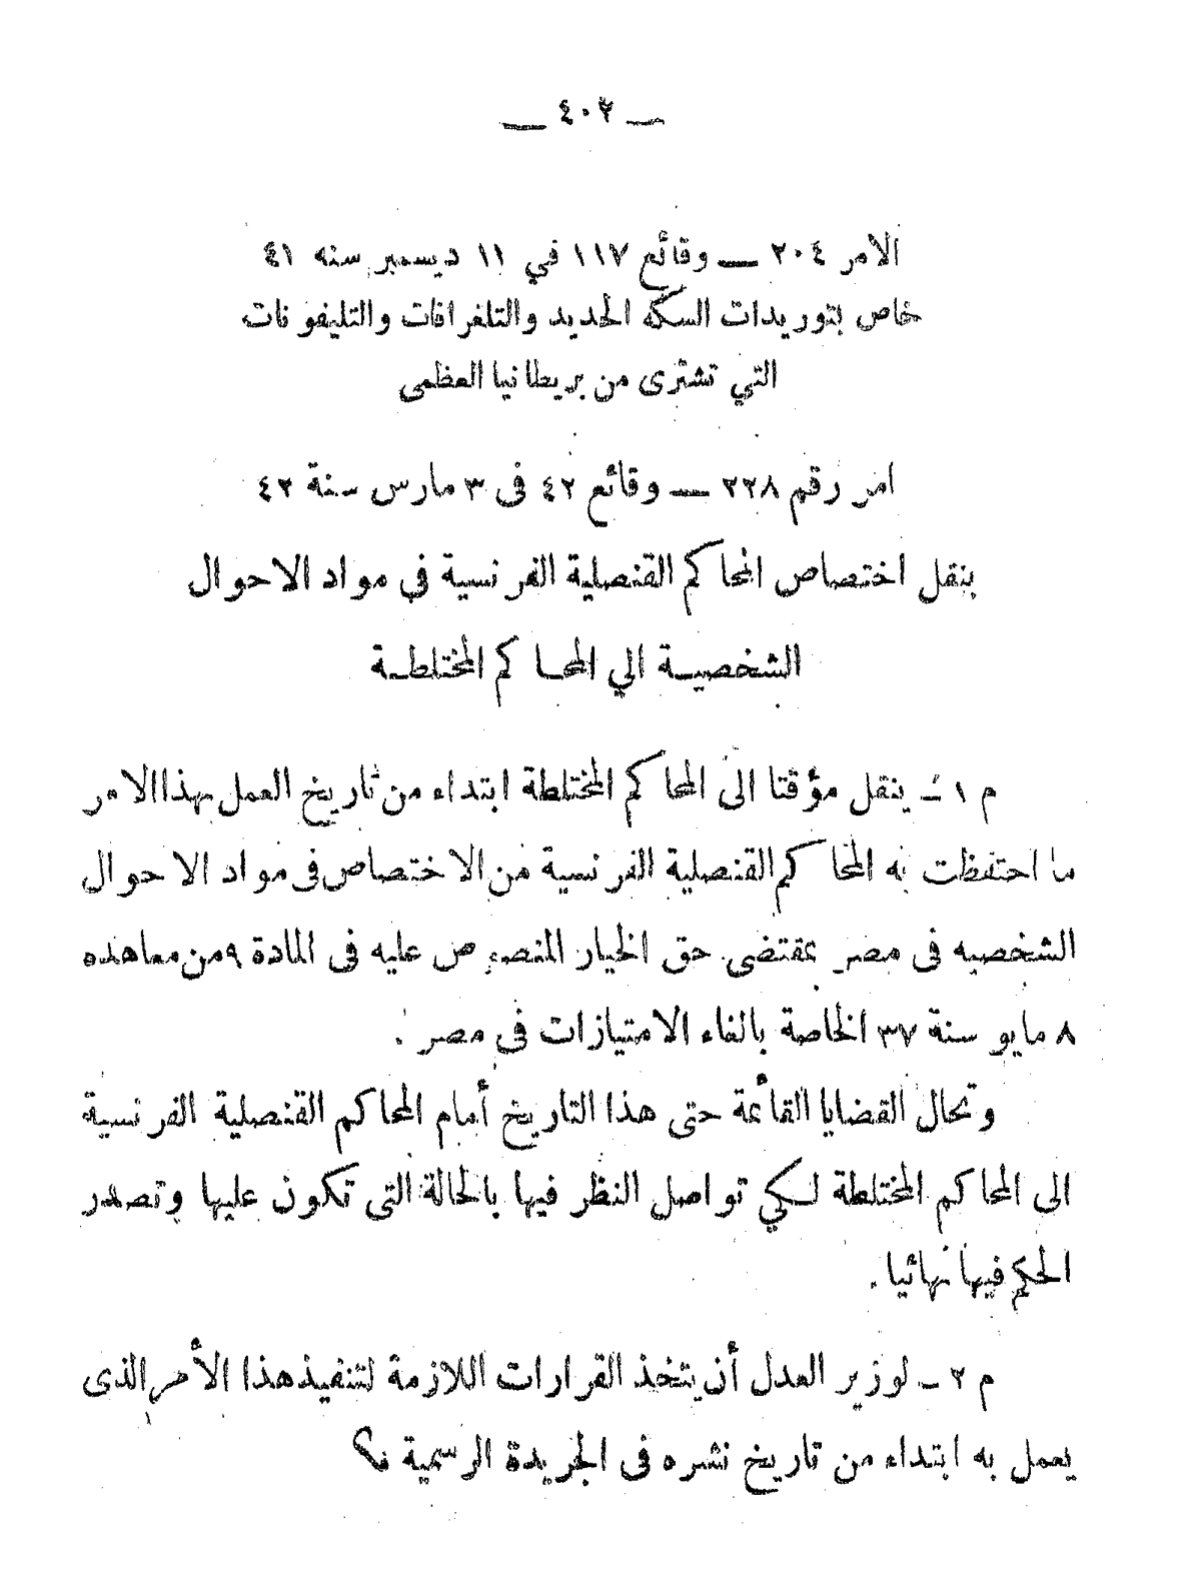 — ٤٠٢ —
الامر ٢٠٤ — وقائع ١١٧ في ١١ ديسمبر سنه ٤١
خاص بتوريدات السكه الحديد والتلغرافات والتليفونات
التي تشترى من بريطانيا العظمى
امر رقم ٢٢٨ — وقائع ٤٢ فى ٣ مارس سنة ٤٢
بنقل اختصاص المحاكم القنصلية الفرنسية في مواد الاحوال
الشخصية الي المحاكم المختلطة
م ١ – ينقل مؤقتا الى المحاكم المختلطة ابتداء من تاريخ العمل بهذا الامر
ما احتفظت به المحاكم القنصلية الفرنسية من الاختصاص فى مواد الاحوال
الشخصيه فى مصر بمقتضى حق الخيار المنصوص عليه فى المادة ٩ من معاهده
٨ مايو سنة ٣٧ الخاصة بالغاء الامتيازات فى مصر .
وتحال القضايا القائمة حتى هذا التاريخ أمام المحاكم القنصلية الفرنسية
الى المحاكم المختلطة لكي تواصل النظر فيها بالحالة التى تكون عليها وتصدر
الحكم فيها نهائيا .
م ٢ – لوزير العدل أن يتخذ القرارات اللازمة لتنفيذ هذا الأمر الذى
يعمل به ابتداء من تاريخ نشره فى الجريدة الرسمية